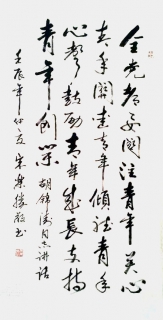 全党都要関注青年关心
青年関爱青年倾听青年
心声鼓励青年成长支持
青年创业 胡锦涛同志讲话
壬辰年仲夏 宋